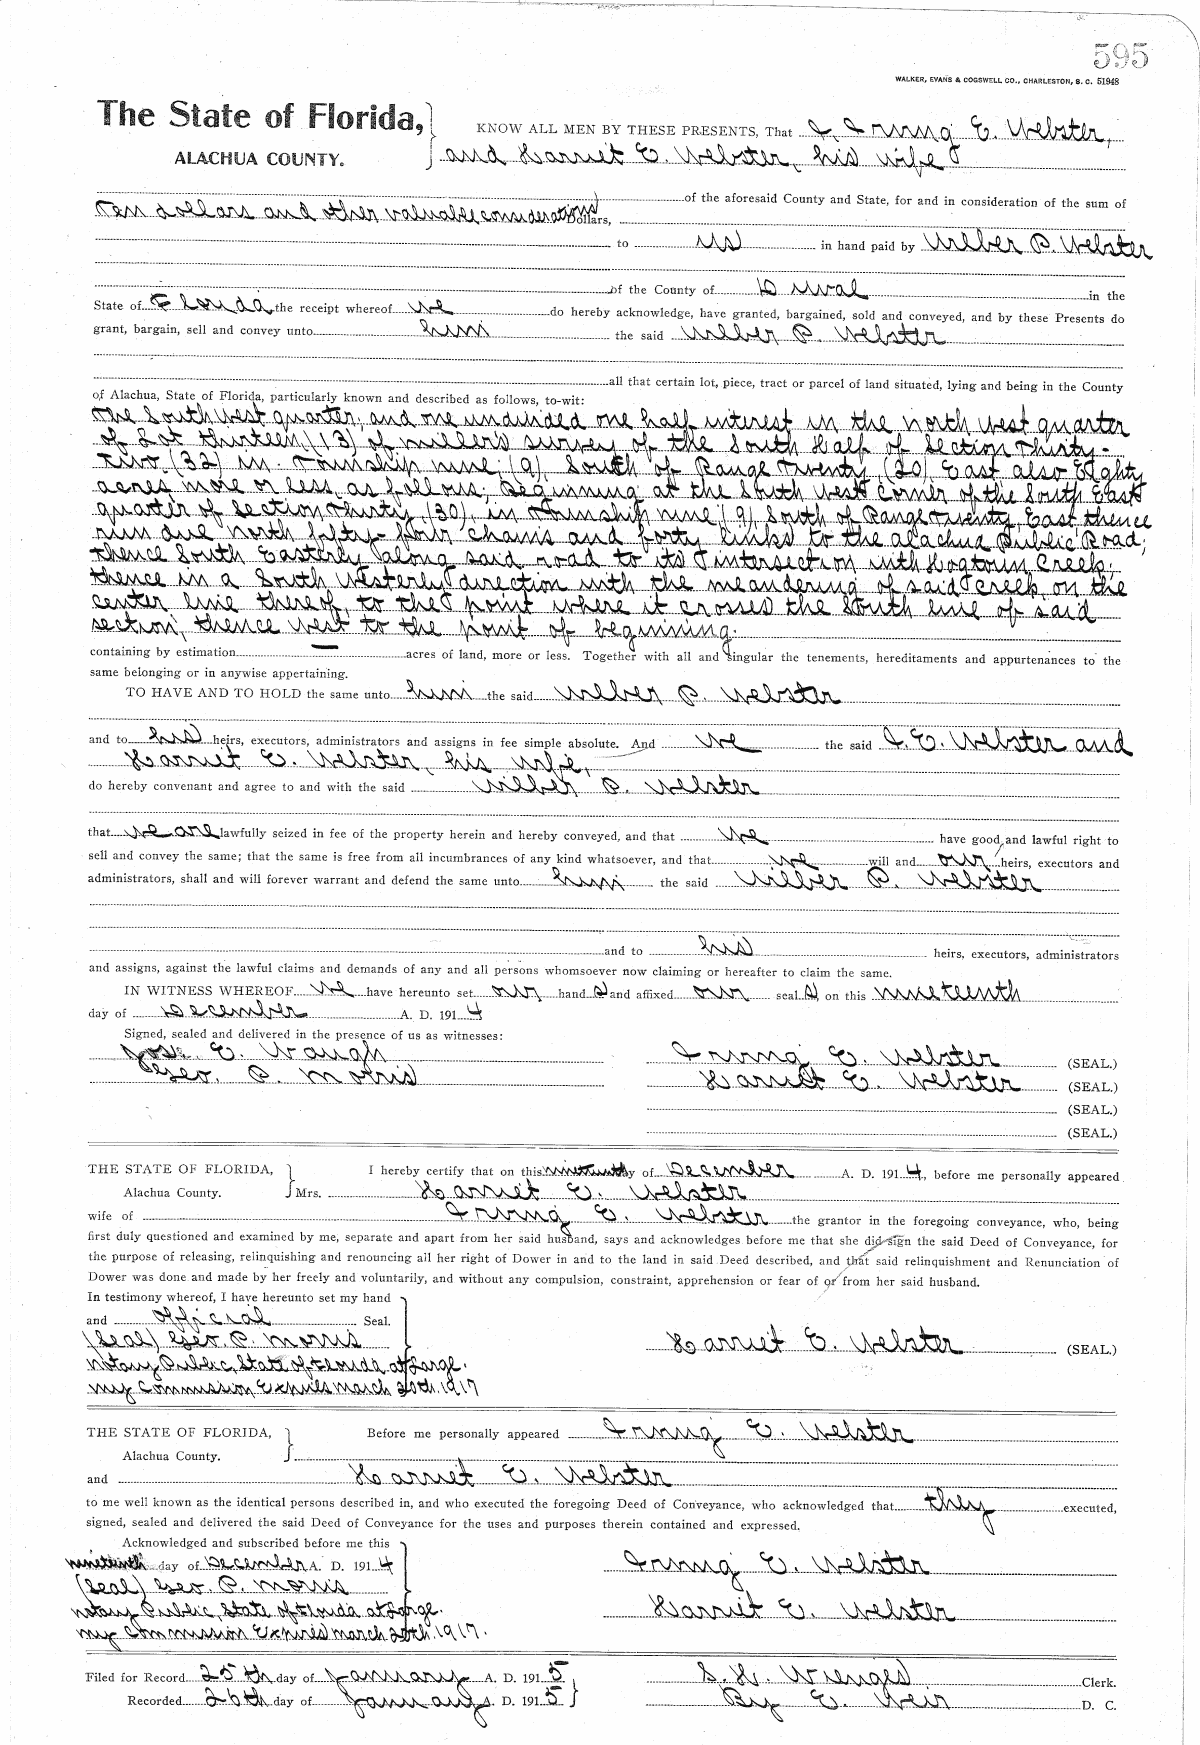 595
WALKER, EVANS & COGSWELL CO., CHARLESTON, S. C. 51948
The State of Florida,
ALACHUA COUNTY.
KNOW ALL MEN BY THESE PRESENTS, That I, Irving E. Webster,
and Harriet E. Webster, his wife
of the aforesaid County and State, for and in consideration of the sum of
Ten dollars and other valuable considerations Dollars,
to us in hand paid by Wilber P. Webster
of the County of Duval in the
State of Florida the receipt whereof we do hereby acknowledge, have granted, bargained, sold and conveyed, and by these Presents do
grant, bargain, sell and convey unto him the said Wilber P. Webster
all that certain lot, piece, tract or parcel of land situated, lying and being in the County
of Alachua, State of Florida, particularly known and described as follows, to-wit:
The South West quarter, and one undivided one half interest in the north west quarter
of Lot thirteen (13) of miller's survey of the South Half of Section Thirty-
Two (32) in Township nine (9) South of Range Twenty (20) East also Eighty
acres more or less as follows; Beginning at the South West Corner of the South East
quarter of Section Thirty (30), in Township nine (9) South of Range Twenty East thence
run due north fifty-four chains and forty links to the Alachua Public Road;
thence South Easterly along said road to its intersection with Hogtown Creek;
thence in a South Westerly direction with the meandering of said Creek, on the
center line thereof, to the point where it crosses the South line of said
section, thence west to the point of beginning.
containing by estimation — acres of land, more or less. Together with all and singular the tenements, hereditaments and appurtenances to the
same belonging or in anywise appertaining.
TO HAVE AND TO HOLD the same unto him the said Wilber P. Webster
and to his heirs, executors, administrators and assigns in fee simple absolute. And we the said I. E. Webster and
Harriet E. Webster, his wife,
do hereby convenant and agree to and with the said Wilber P. Webster
that we are lawfully seized in fee of the property herein and hereby conveyed, and that we have good, and lawful right to
sell and convey the same; that the same is free from all incumbrances of any kind whatsoever, and that we will and our heirs, executors and
administrators, shall and will forever warrant and defend the same unto him the said Wilber P. Webster
and to his heirs, executors, administrators
and assigns, against the lawful claims and demands of any and all persons whomsoever now claiming or hereafter to claim the same.
IN WITNESS WHEREOF we have hereunto set our hand s and affixed our seal s on this nineteenth
day of December A. D. 1914
Signed, sealed and delivered in the presence of us as witnesses:
Jos. E. Waugh Irving E. Webster (SEAL.)
Geo. P. Morris Harriet E. Webster (SEAL.)
(SEAL.)
(SEAL.)
THE STATE OF FLORIDA, I hereby certify that on this nineteenth day of December A. D. 1914, before me personally appeared
Alachua County. Mrs. Harriet E. Webster
wife of Irving E. Webster the grantor in the foregoing conveyance, who, being
first duly questioned and examined by me, separate and apart from her said husband, says and acknowledges before me that she did sign the said Deed of Conveyance, for
the purpose of releasing, relinquishing and renouncing all her right of Dower in and to the land in said Deed described, and that said relinquishment and Renunciation of
Dower was done and made by her freely and voluntarily, and without any compulsion, constraint, apprehension or fear of or from her said husband.
In testimony whereof, I have hereunto set my hand
and official Seal.
(Seal) Geo. P. Morris Harriet E. Webster (SEAL.)
Notary Public, State of Florida at Large.
My Commission Expires March 20th. 1917
THE STATE OF FLORIDA, Before me personally appeared Irving E. Webster
Alachua County.
and Harriet E. Webster
to me well known as the identical persons described in, and who executed the foregoing Deed of Conveyance, who acknowledged that they executed,
signed, sealed and delivered the said Deed of Conveyance for the uses and purposes therein contained and expressed.
Acknowledged and subscribed before me this
nineteenth day of December A. D. 1914 Irving E. Webster
(Seal) Geo. P. Morris
Notary Public, State of Florida at Large. Harriet E. Webster
My Commission Expires March 20th. 1917.
Filed for Record 25th day of January A. D. 1915 S. H. Wienges Clerk.
Recorded 26th day of January A. D. 1915 By E. Weir D. C.